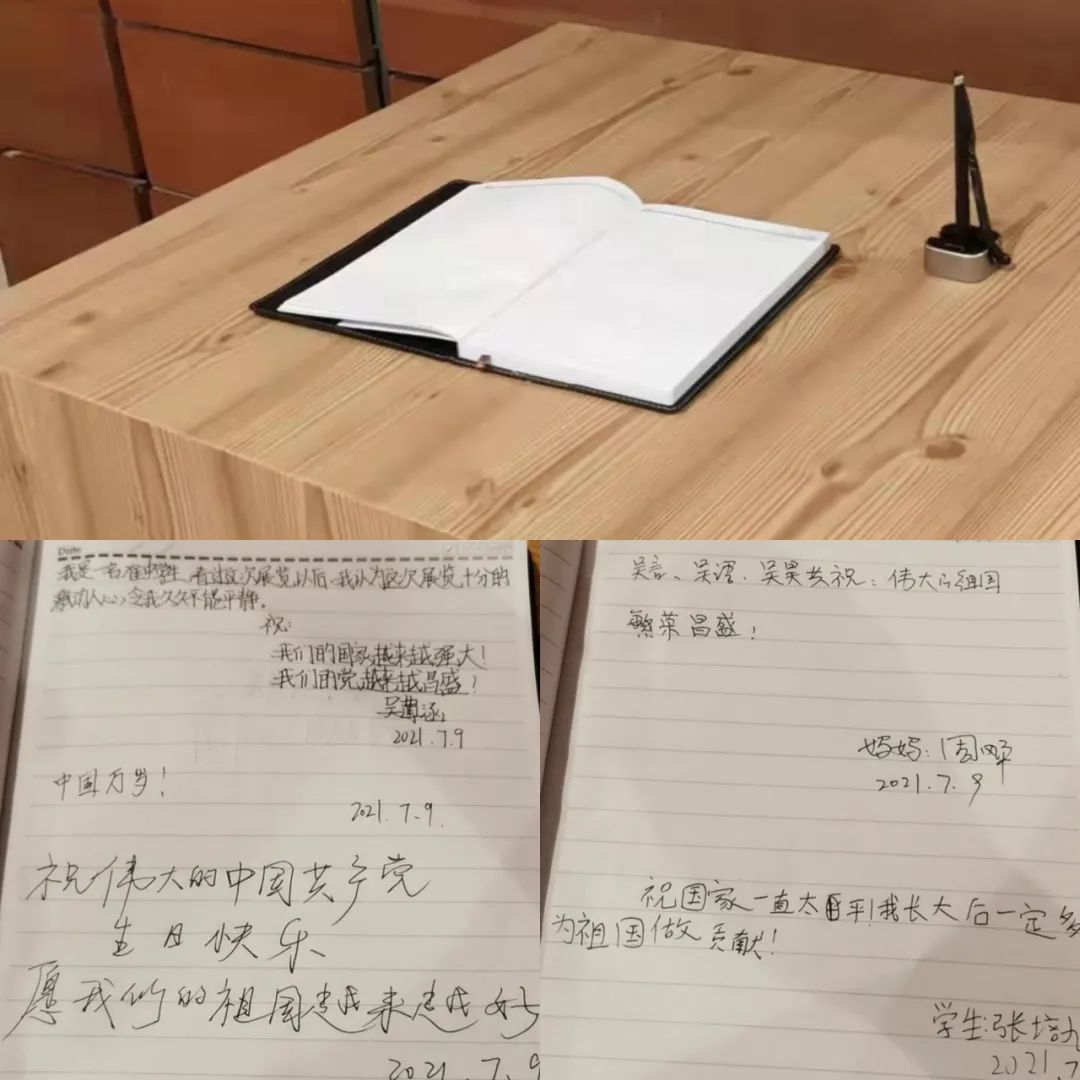 Date
我是一名准中学生,看过这次展览以后,我认为这次展览十分的
激动人心,令我久久不能平静。
祝:
我们的国家越来越强大!
我们的党越来越昌盛!
吴
2021.7.9
中国万岁!
2021.7.9.
祝伟大的中国共产党
生日快乐
愿我们的祖国越来越好
2021.7.9
吴言、吴语、吴果共祝:伟大的祖国
繁荣昌盛!
妈妈:周
2021.7.9
祝国家一直太平!我长大后一定
为祖国做贡献!
学生:张培
2021.7